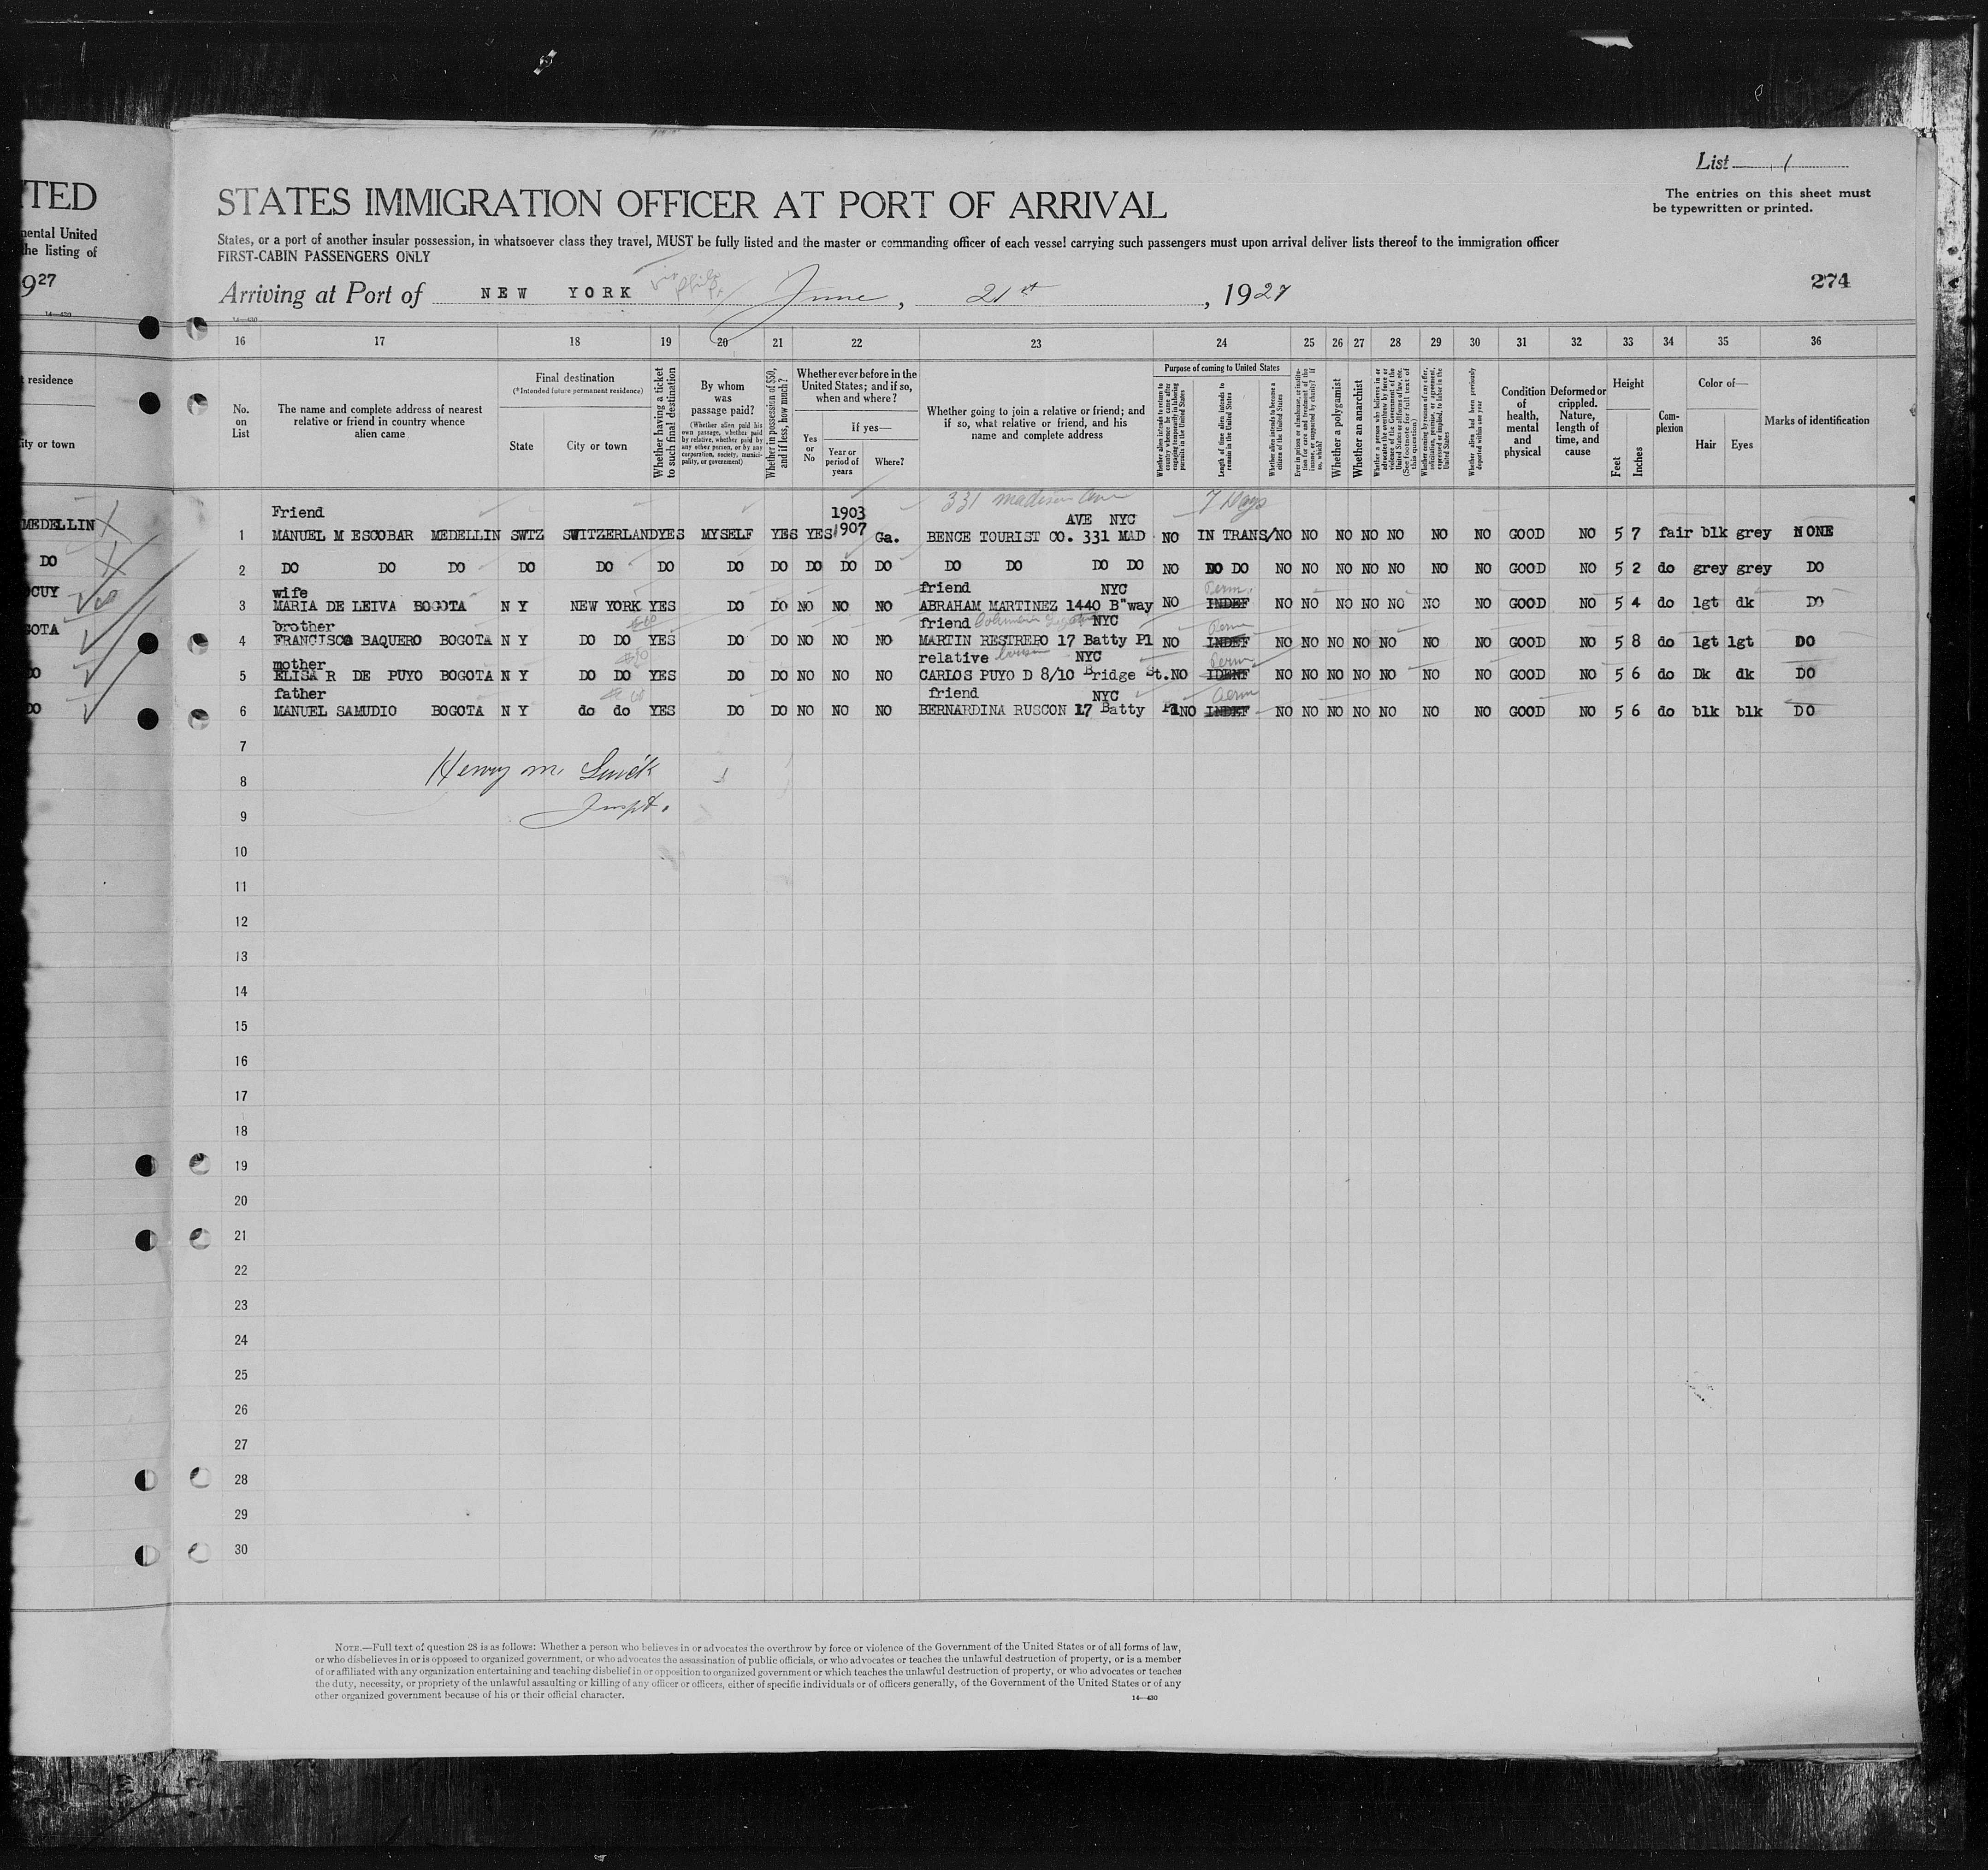 TED
mental United
he listing of
927
14—430
residence
ity or town
MEDELLIN
DO
OCUY
GOTA
DO
DO
List 1
The entries on this sheet must
be typewritten or printed.
STATES IMMIGRATION OFFICER AT PORT OF ARRIVAL
States, or a port of another insular possession, in whatsoever class they travel, MUST be fully listed and the master or commanding officer of each vessel carrying such passengers must upon arrival deliver lists thereof to the immigration officer
FIRST-CABIN PASSENGERS ONLY
Arriving at Port of NEW YORK June, 21st, 1927
274
14—430
16 17 18 19 20 21 22 23 24 25 26 27 28 29 30 31 32 33 34 35 36
No. on List
The name and complete address of nearest relative or friend in country whence alien came
Final destination
(*Intended future permanent residence)
State
City or town
Whether having a ticket to such final destination
By whom was passage paid?
(Whether alien paid his own passage, whether paid by relative, whether paid by any other person, or by any corporation, society, municipality, or government)
Whether in possession of $50, and if less, how much?
Whether ever before in the United States; and if so, when and where?
Yes or No
If yes—
Year or period of years
Where?
Whether going to join a relative or friend; and if so, what relative or friend, and his name and complete address
Purpose of coming to United States
Whether alien intends to return to country whence he came after engaging temporarily in laboring pursuits in the United States
Length of time alien intends to remain in the United States
Whether alien intends to become a citizen of the United States
Ever in prison or almshouse, or institution for care and treatment of the insane, or supported by charity? If so, which?
Whether a polygamist
Whether an anarchist
Whether a person who believes in or advocates the overthrow by force or violence of the Government of the United States or all forms of law, etc. (See footnote for full text of this question.)
Whether coming by reason of any offer, solicitation, promise, or agreement, expressed or implied, to labor in the United States
Whether alien had been previously deported within one year
Condition of health, mental and physical
Deformed or crippled. Nature, length of time, and cause
Height
Feet
Inches
Complexion
Color of—
Hair
Eyes
Marks of identification
331 Madison Ave 7 Days
Friend 1903 AVE NYC
1 MANUEL M ESCOBAR MEDELLIN SWTZ SWITZERLAND YES MYSELF YES YES 1907 Ga. BENCE TOURIST CO. 331 MAD NO IN TRANS/ NO NO NO NO NO NO NO GOOD NO 5 7 fair blk grey NONE
2 DO DO DO DO DO DO DO DO DO DO DO DO DO DO DO NO DO DO NO NO NO NO NO NO NO GOOD NO 5 2 do grey grey DO
wife friend NYC Perm.
3 MARIA DE LEIVA BOGOTA N Y NEW YORK YES DO DO NO NO NO ABRAHAM MARTINEZ 1440 B"way NO INDEF NO NO NO NO NO NO NO GOOD NO 5 4 do lgt dk DO
brother friend NYC Perm
4 FRANCISCO BAQUERO BOGOTA N Y DO DO YES DO DO NO NO NO MARTIN RESTREPO 17 Batty Pl NO INDEF NO NO NO NO NO NO NO GOOD NO 5 8 do lgt lgt DO
mother relative NYC Perm
5 ELISA R DE PUYO BOGOTA N Y DO DO YES DO DO NO NO NO CARLOS PUYO D 8/10 Bridge St. NO IDENF NO NO NO NO NO NO NO GOOD NO 5 6 do Dk dk DO
father friend NYC Perm
6 MANUEL SAMUDIO BOGOTA N Y do do YES DO DO NO NO NO BERNARDINA RUSCON 17 Batty Pl NO INDEF NO NO NO NO NO NO NO GOOD NO 5 6 do blk blk DO
7
8 Henry M.
9 Inspt.
10
11
12
13
14
15
16
17
18
19
20
21
22
23
24
25
26
27
28
29
30
NOTE.—Full text of question 28 is as follows: Whether a person who believes in or advocates the overthrow by force or violence of the Government of the United States or of all forms of law,
or who disbelieves in or is opposed to organized government, or who advocates the assassination of public officials, or who advocates or teaches the unlawful destruction of property, or is a member
of or affiliated with any organization entertaining and teaching disbelief in or opposition to organized government or which teaches the unlawful destruction of property, or who advocates or teaches
the duty, necessity, or propriety of the unlawful assaulting or killing of any officer or officers, either of specific individuals or of officers generally, of the Government of the United States or of any
other organized government because of his or their official character.
14—430